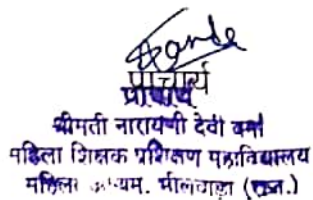 प्राचार्य
प्राचार्य
श्रीमती नारायणी देवी वर्मा
महिला शिक्षक प्रशिक्षण महाविद्यालय
महिला आश्रम, भीलवाड़ा (राज.)